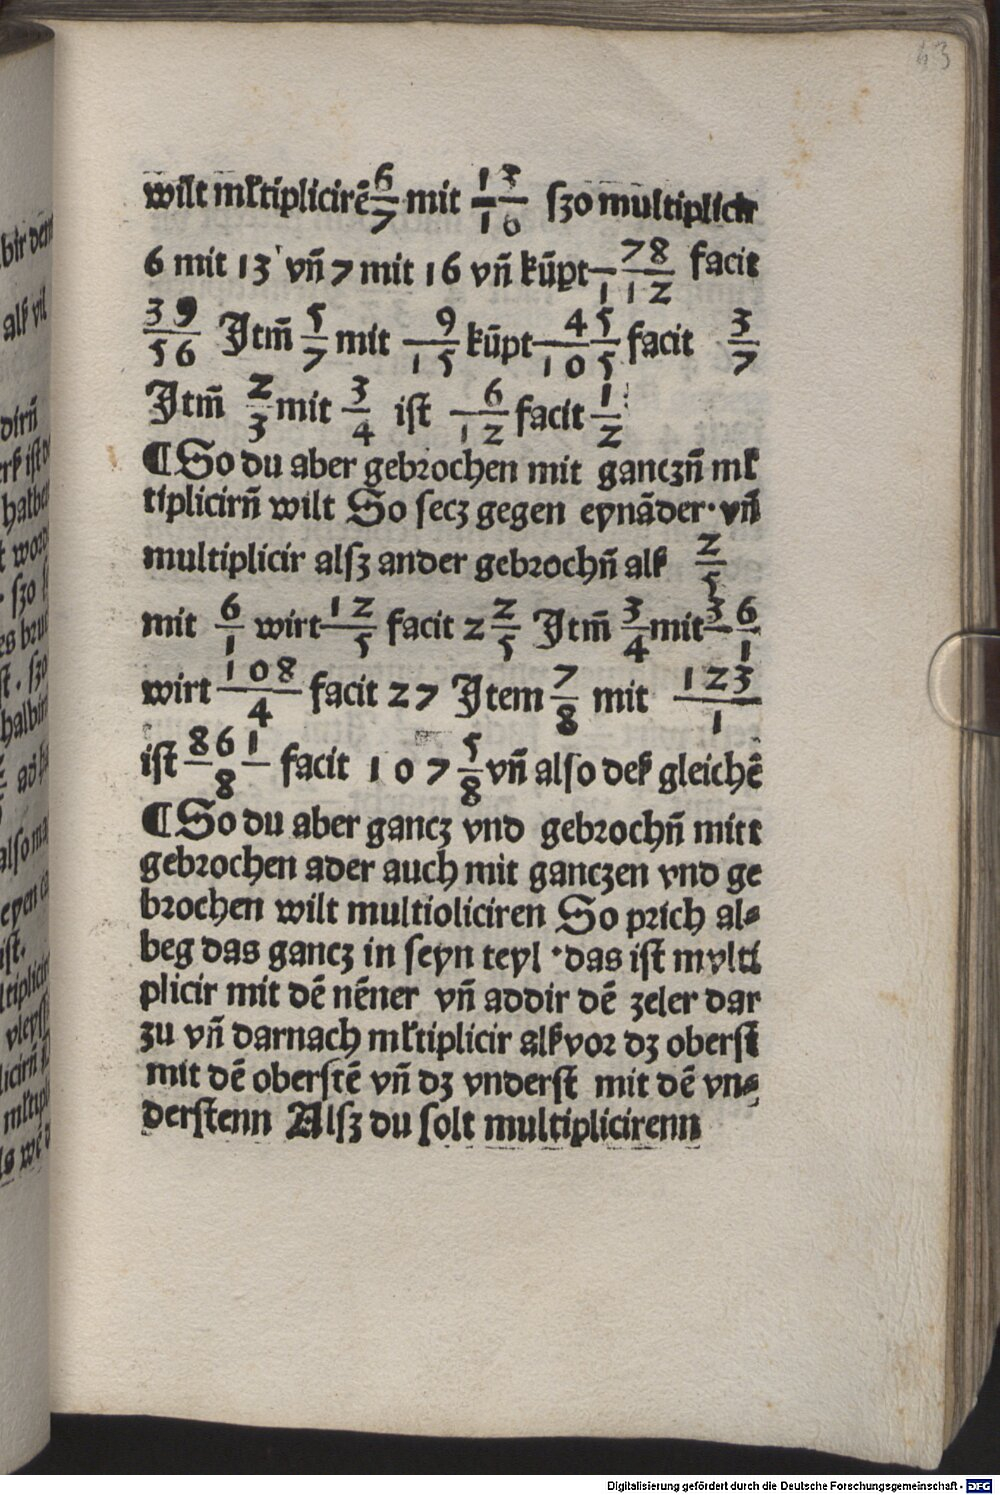 43
wilt mĺtiplicirē 6/7 mit 13/16 ſzo multiplicir
6 mit 13 vn̄ 7 mit 16 vn̄ kūpt 78/112 facit
39/56 Itm̄ 5/7 mit 9/15 kūpt 45/105 facit 3/7
Itm̄ 2/3 mit 3/4 iſt 6/12 facit 1/2
¶ So du aber gebꝛochen mit ganczn̄ mĺ
tiplicirn̄ wilt So ſecz gegen eynāder · vn̄
multiplicir alſz ander gebꝛochn̄ alſz 2/5
mit 6/1 wirt 12/5 facit 2 2/5 Itm̄ 3/4 mit 36/1
wirt 108/4 facit 27 Item 7/8 mit 123/1
iſt 861/8 facit 107 5/8 vn̄ alſo deſz gleichē
¶ So du aber gancz vnd gebꝛochn̄ mitt
gebꝛochen ader auch mit ganczen vnd ge
bꝛochen wilt multioliciren So pꝛich al⸗
beg das gancz in ſeyn teyl · das iſt mvlti
plicir mit dē nēner vn̄ addir dē zeler dar
zu vn̄ darnach mĺtiplicir alſz voꝛ dz oberſt
mit dē oberſtē vn̄ dz vnderſt mit dē vn⸗
derſtenn Alſz du ſolt multiplicirenn
Digitalisierung gefördert durch die Deutsche Forschungsgemeinschaft - DFG